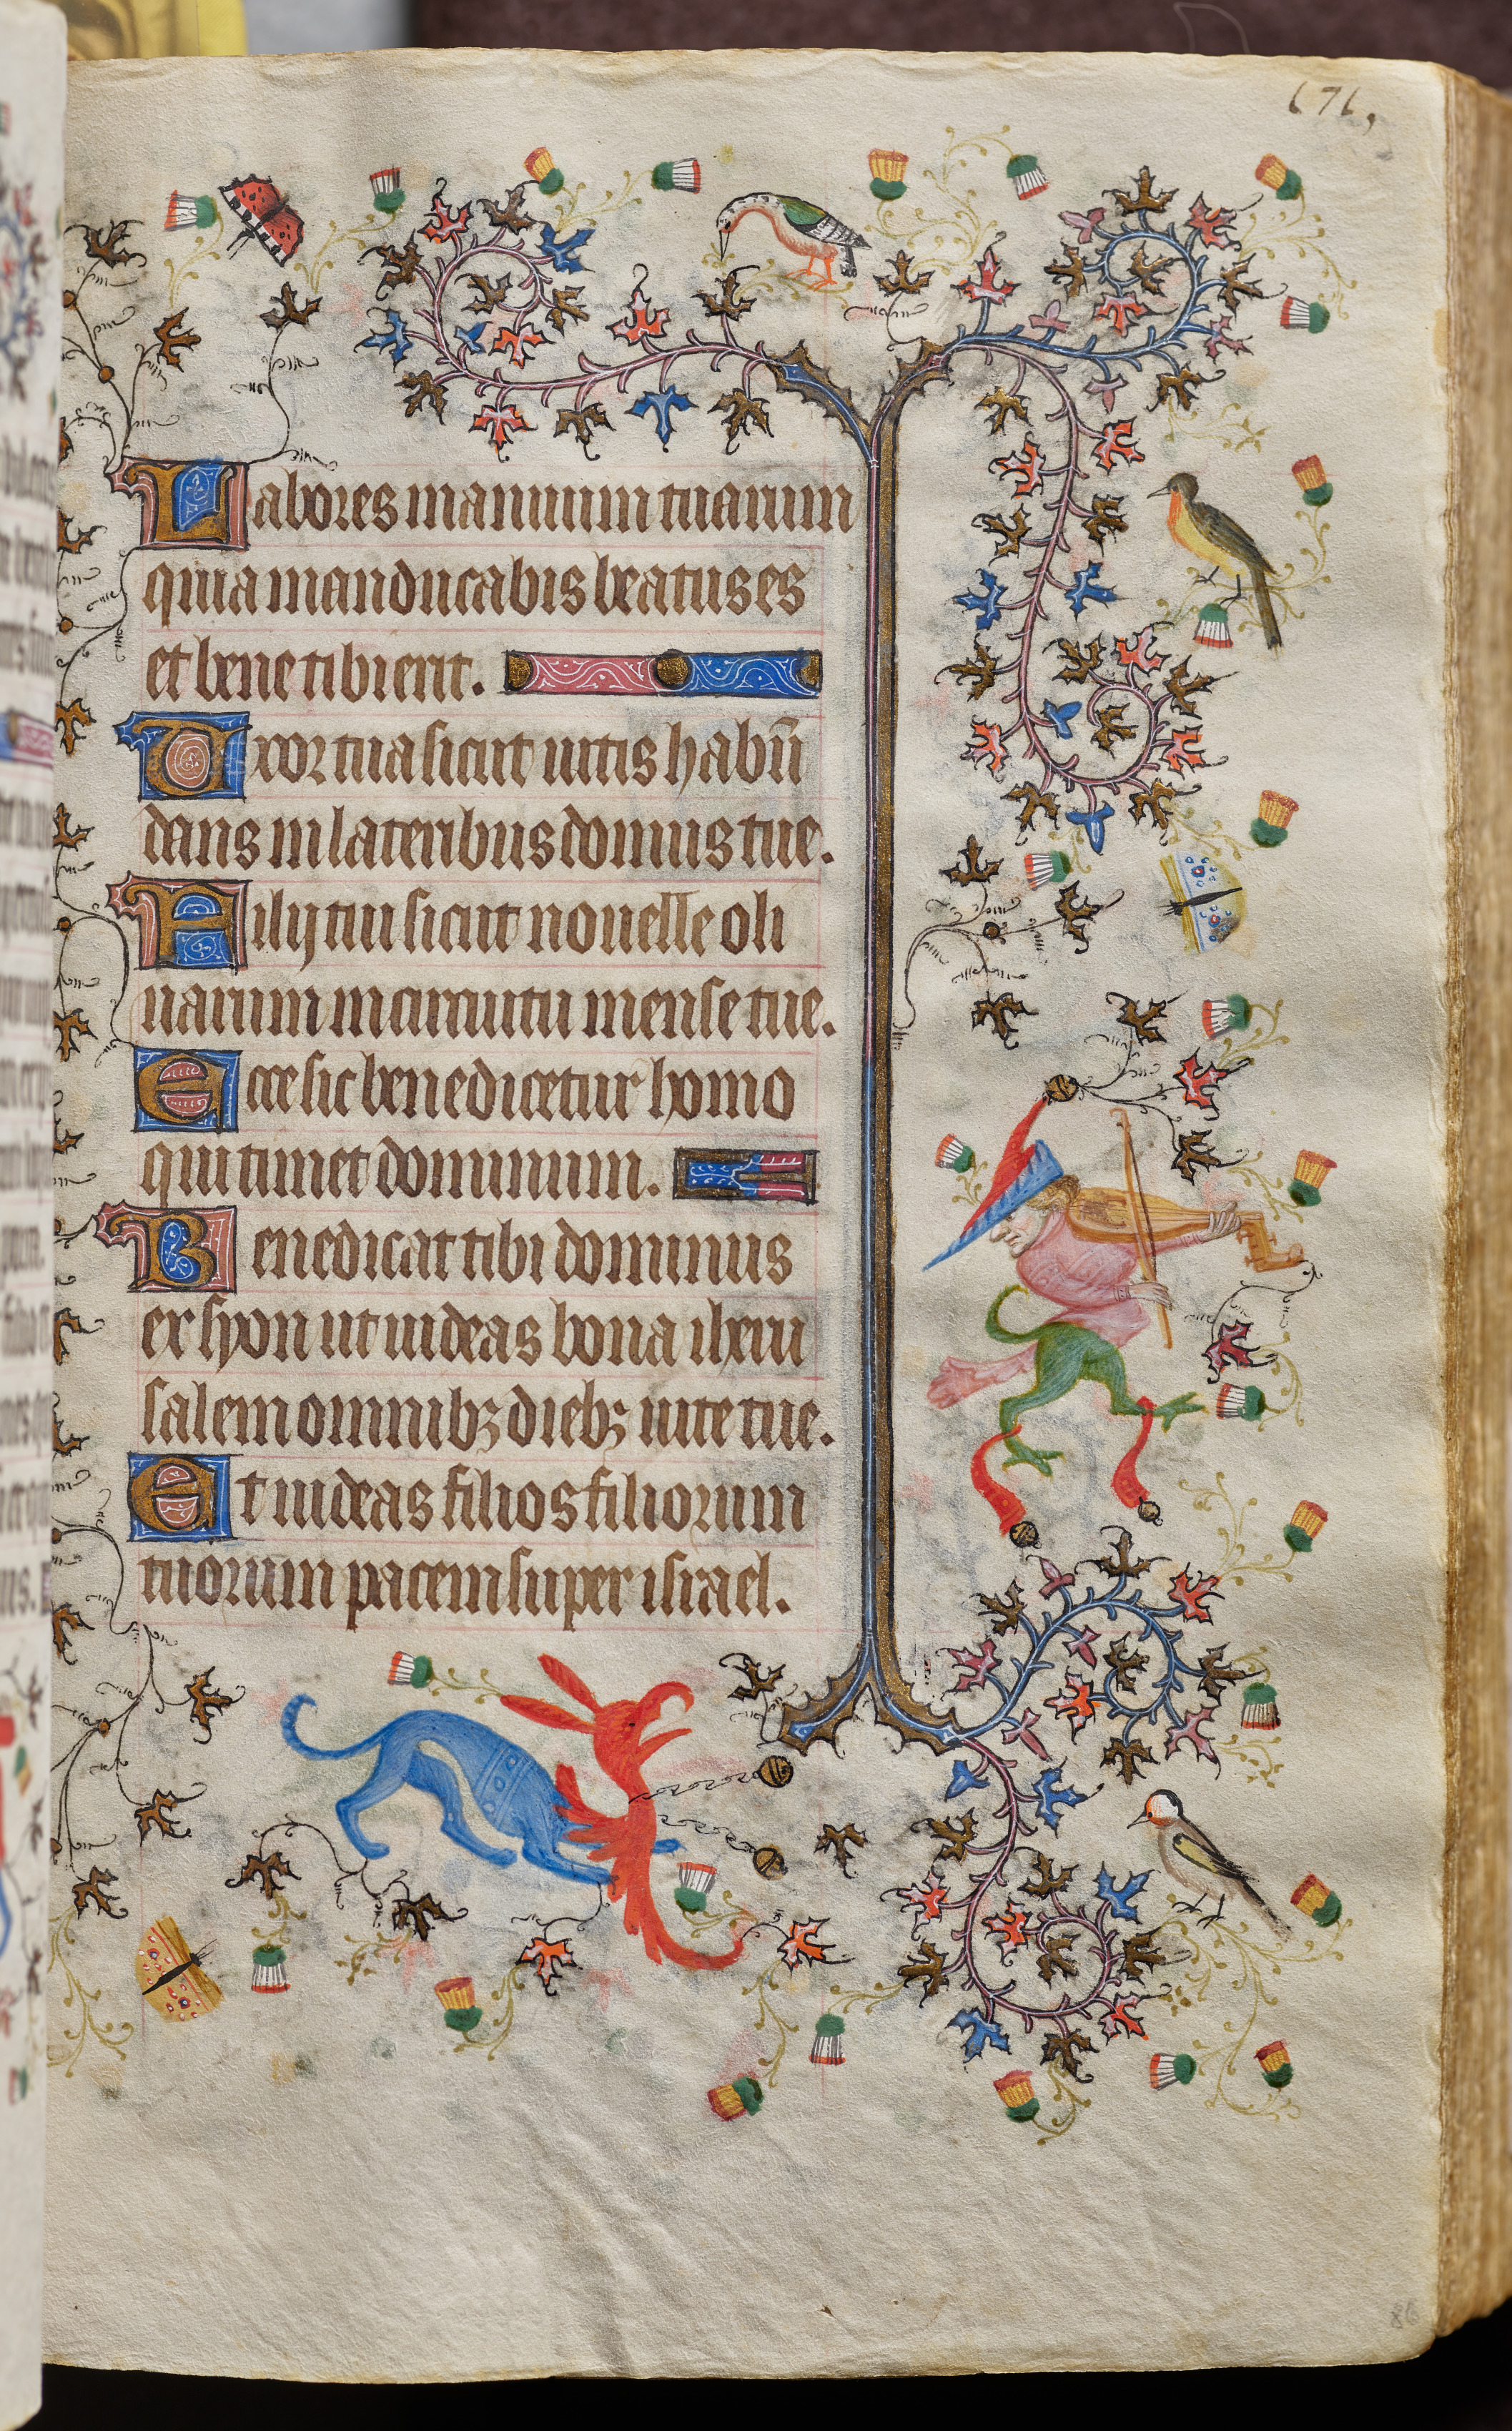 671,
Labores manuum tuarum
quia manducabis beatus es
et bene tibi erit.
Uxor tua sicut uitis habū
dans in lateribus domus tue.
Filij tui sicut nouelle oli
uarum in circuitu mense tue.
Ecce sic benedicetur homo
qui timet dominum.
Benedicat tibi dominus
ex syon ut uideas bona iheru
salem omnibꝫ diebꝫ uite tue.
Et uideas filios filiorum
tuorum pacem super israel.
86